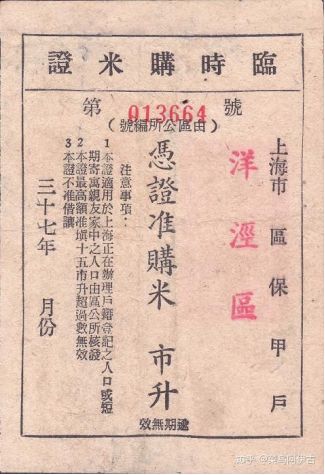 臨時購米證
第 013664 號
(由區公所編號)
上海市 區 保 甲 戶
洋涇區
憑證准購米 市升
逾期無效
注意事項:
1本證適用於上海正在辦理戶籍登記之人口或短
期寄寓親友家中之人口由區公所核發
2本證最高額准填十五市升超過數無效
3本證不准借讓
三十七年 月份
知乎 @菜鸟同伊古